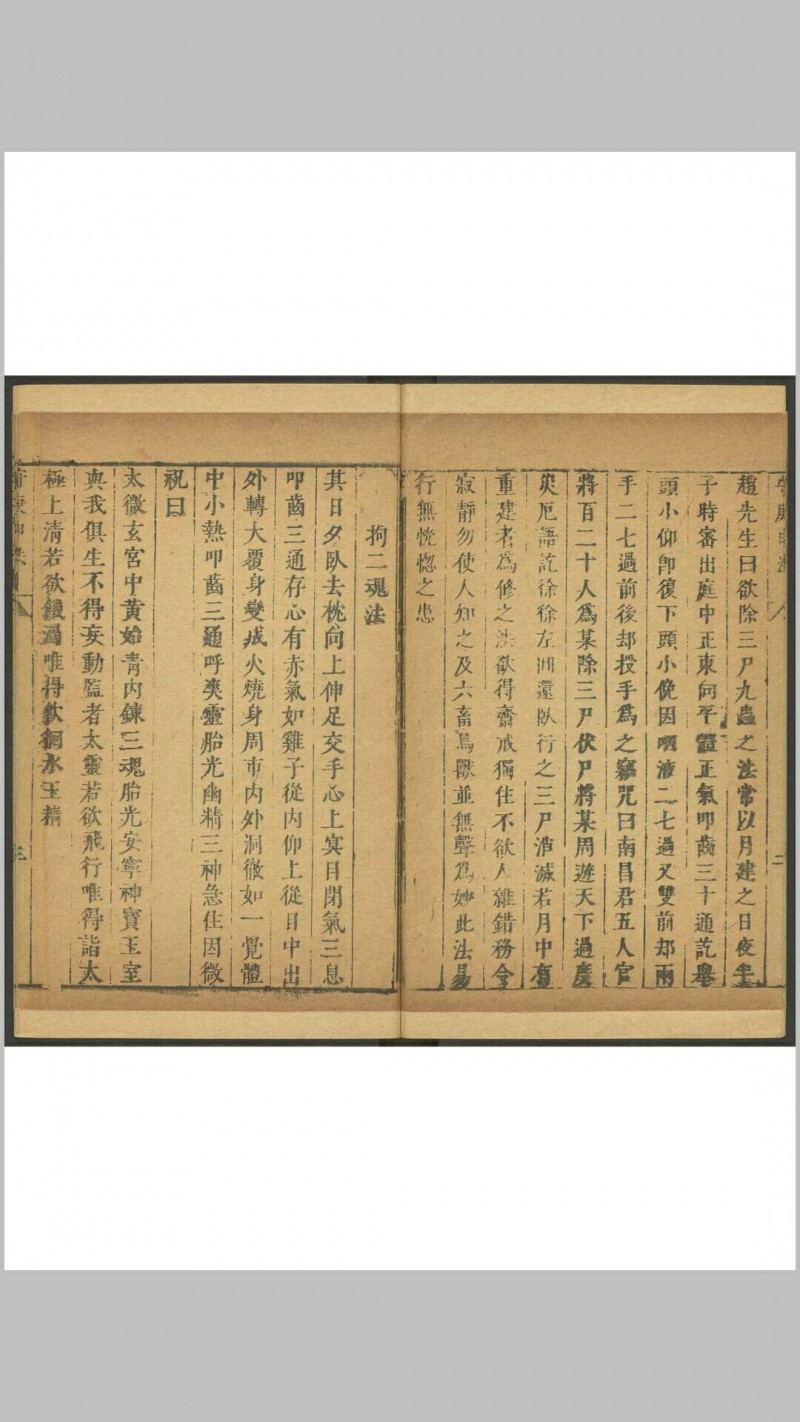 趙先生曰欲除三尸九蟲之法常以月建之日夜半
子時審出庭中正東向平體正氣叩齒三十通訖舉
頭小仰卽復下頭小俛因嚥液二七過又雙前却兩
手二七過前後却授手爲之竊咒曰南昌君五人官
將百二十人爲某除三尸伏尸將某周遊天下過度
災厄語訖徐徐左迴還臥行之三尸消滅若月中有
重建者爲修之法欲得齋戒獨住不欲人雜錯務令
寂靜勿使人知之及六畜鳥獸並無聲爲妙此法易
行無恍惚之患
拘二魂法
其日夕臥去枕向上伸足交手心上冥目閉氣三息
叩齒三通存心有赤氣如雞子從內仰上從目中出
外轉大覆身變成火燒身周帀內外洞徹如一覺體
中小熱叩齒三通呼爽靈胎光幽精三神急住因微
祝曰
太微玄宮中黃始青內鍊三魂胎光安寧神寶玉室
與我俱生不得妄動監者太靈若欲飛行唯得詣太
極上清若欲饑渴唯得飲徊水玉精
三